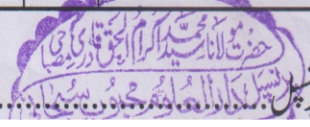 حضرت مولانا سید محمد اکرام الحق قادری مصباحی
پرنسپل دارالعلوم محبوب سبحانی
پرنسپل